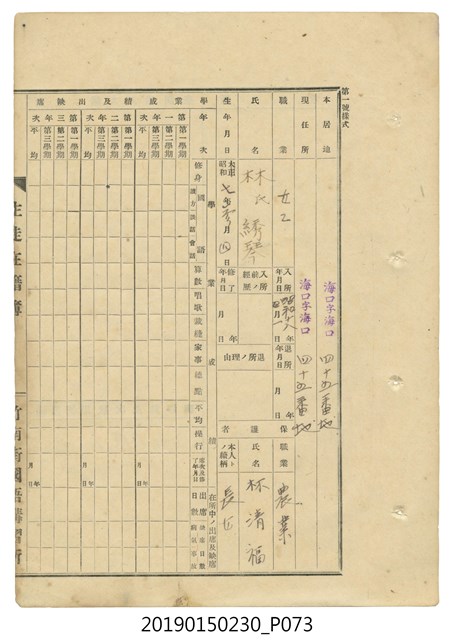 第一號樣式
本居地
海口字海口
四十五番地
現住所
海口字海口
四十五番地
職業
女工
入所年月日
昭和
年
月
日
退所年月日
年
月
日
保護者
職業
農業
氏名
林氏
入所前ノ經歷
退所ノ理由
氏名
林清福
生年月日
大正
昭和
七年
月
日
修了年月日
年
月
日
本人トノ續柄
長女
學年次
學業成績
在所中ノ出席及缺席
修身
國語
讀方
話方
算數
唱歌
裁縫
家事
總點
平均
操行
席次及修了年月日
出席日數
學業成績及出缺席
一年次
第一學期
第二學期
第三學期
平均
二年次
第一學期
第二學期
第三學期
平均
三年次
第一學期
第二學期
第三學期
平均
生徒在籍簿
竹南街國語講習所
20190150230_P073